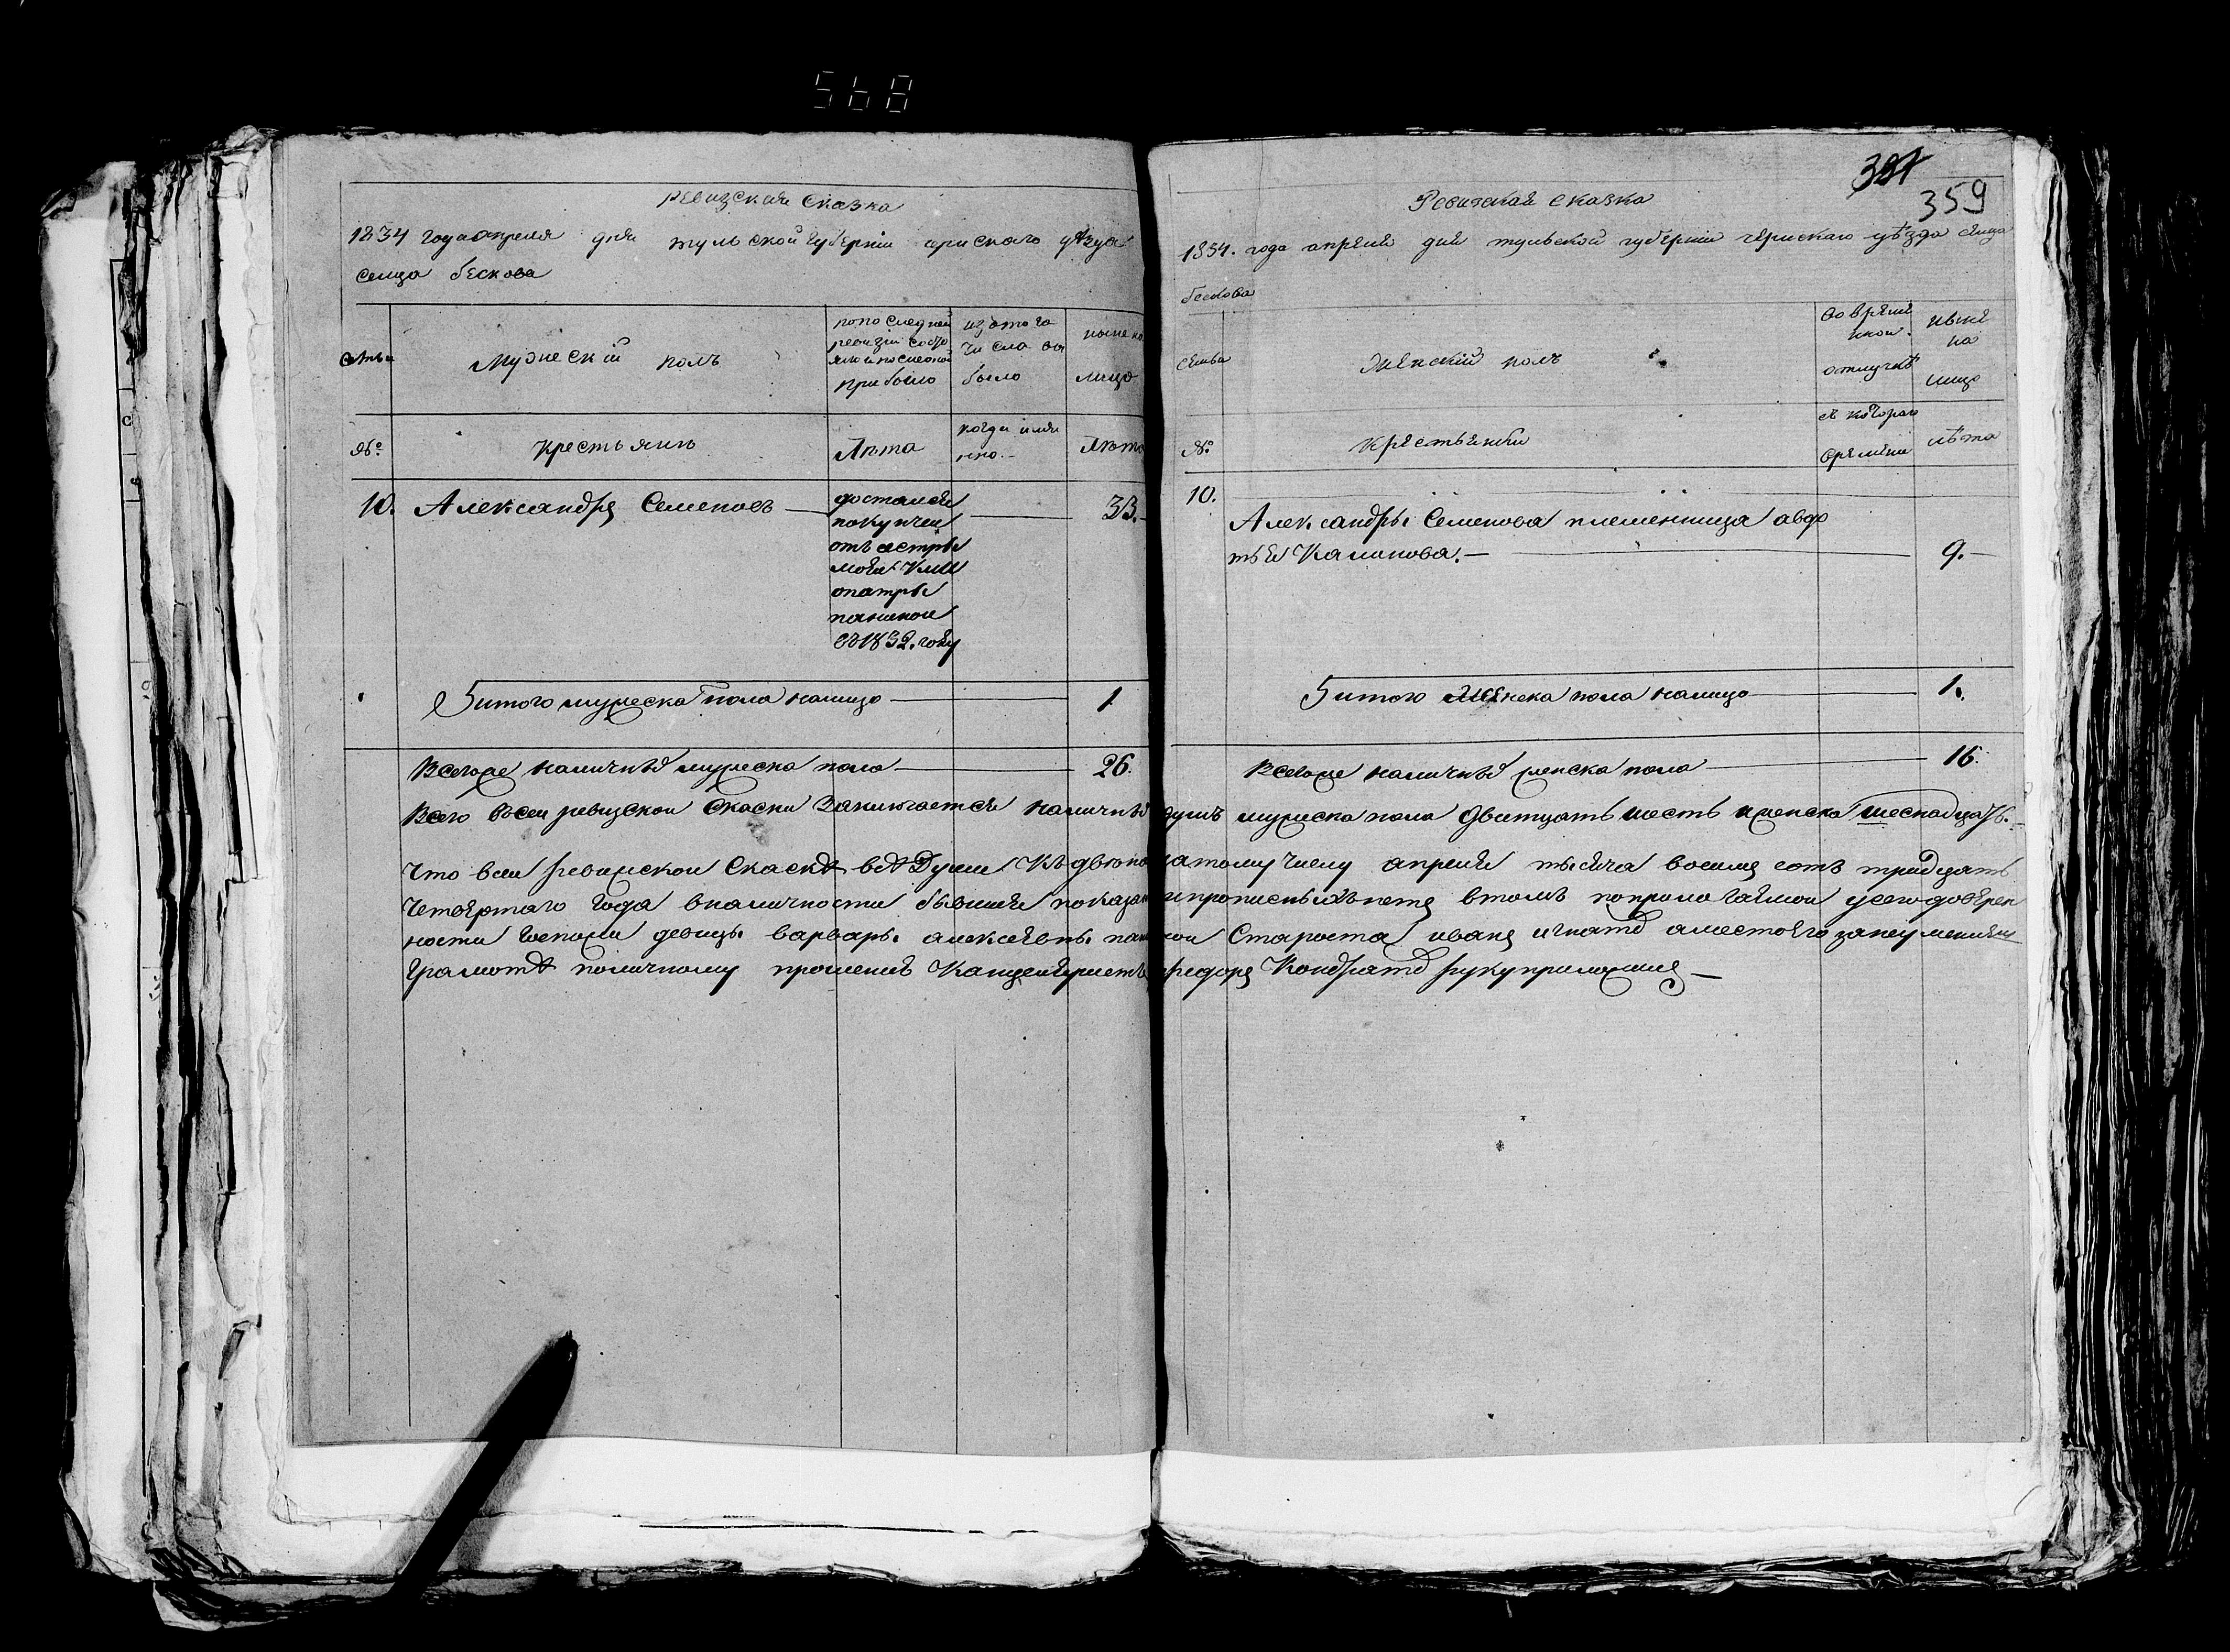 568
Ревизская Сказка
1834 года апреля дня тульской губернии чрнскаго уѣзда
селца бескова
семьи
Мужескiй полъ
попоследней
ревизiи состо
яло ипоследной
прибыло
изътого
числа вы
было
ныне на
лицо
№
крестьянъ
Лѣта
когда имян
но.
Лѣта
10. Александръ Семеновъ 33.
досталси
покупкеи
отъ сестры
моеи Клео
патры
в 1832. году
Iитого мужеска пола налицо 1
Всегоже наличныхъ мужеска пола 26.
381
359
Ревижская сказка
1834. года апреля дня тульской губернiи чернскаго уѣзда селца
бескова
семьи
Женскiй полъ
во врем
нной
отлучкѣ
ныне
на
лицо
№
Крестьянки
съ котораго
времени
лѣта
10.
Александры Семенова племенница авдо
тья Каликова. 9.
Iитого женска пола налицо 1.
Всегоже наличныхъ женска пола 16.
Всего всеи ревизскои Скаски Заключаетси наличныхъ душъ мужеска пола дватцать шесть иженска шеснадцать.
Что всеи ревижскои Скаскѣ всѣ Души Къ двюно атому числу апреля тысяча восимъ сотъ тридцать
Четвертаго года вналичности бывшея показаны ипрописныхъ нетъ втомъ поприло усего доверен
ности госпожи девицы варвары алексѣевны Староста иванъ игнатъ аместоего занеумениемъ
Грамотѣ поличному прошению Канцеляристъ федоръ Кондратъ рукуприложилъ